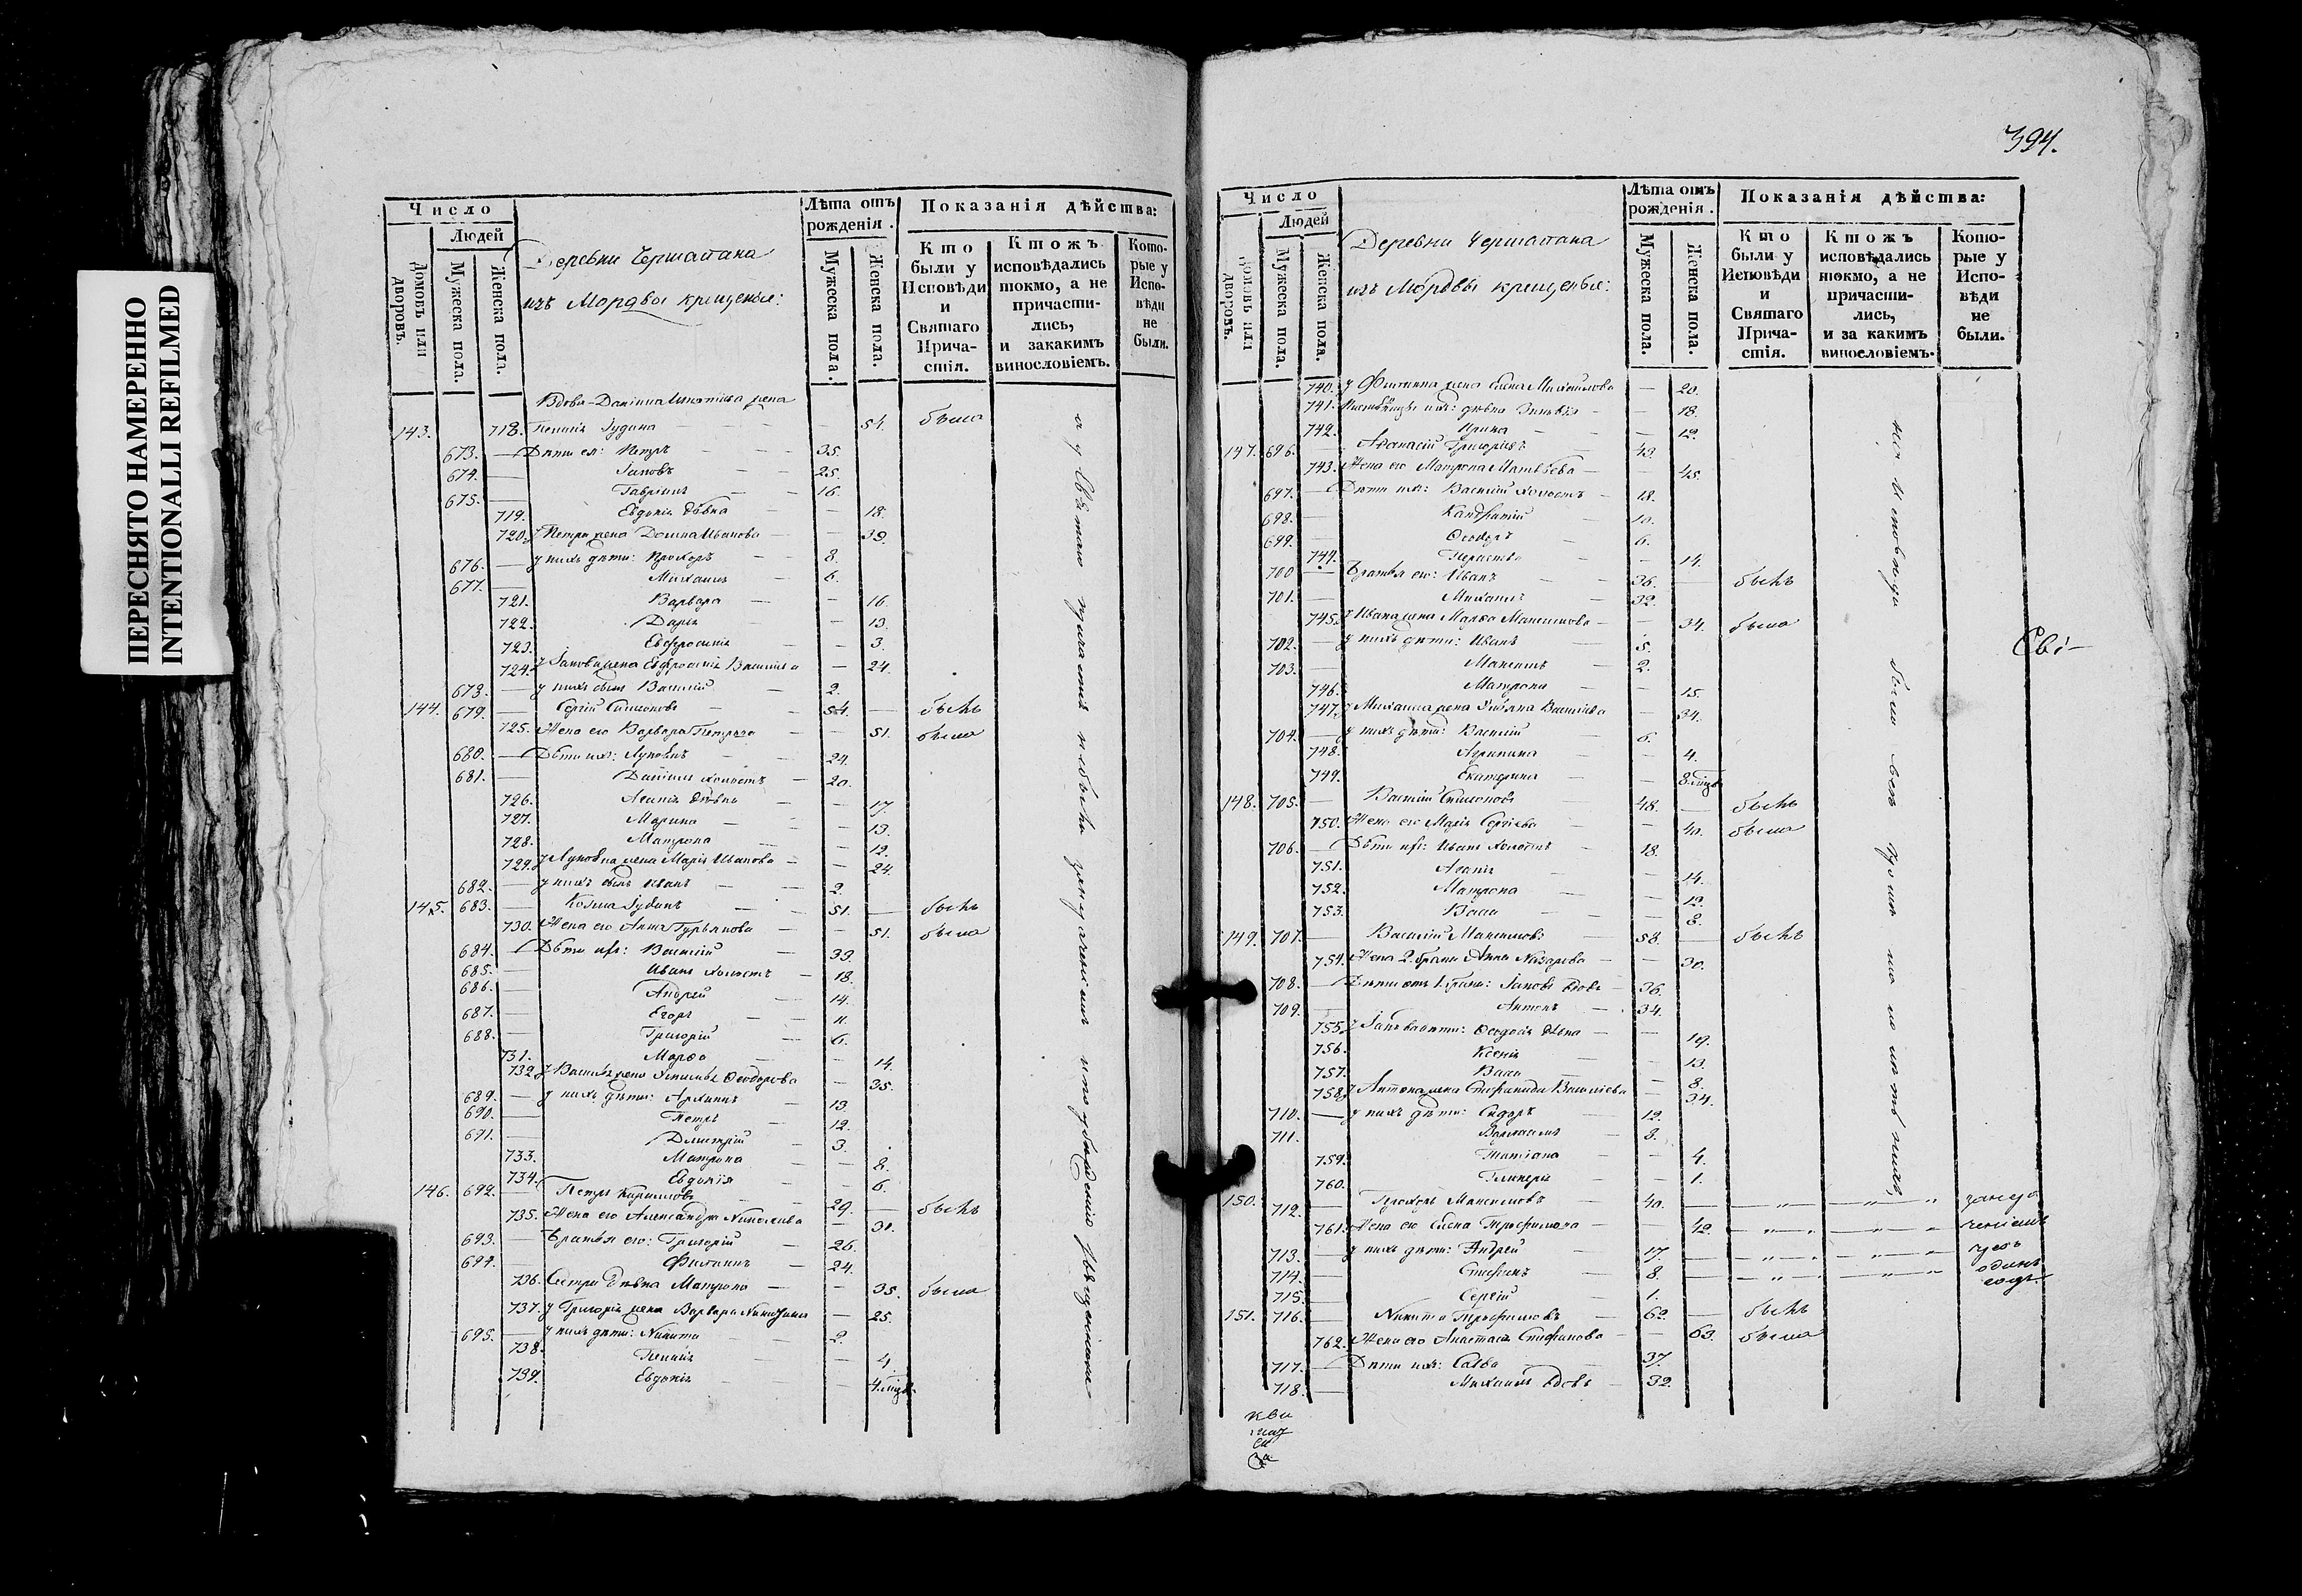 ПЕРЕСНЯТО НАМЕРЕННО
INTENTIONALLI REFILMED
Число
Людей
Домовъ или дворовъ.
Мужеска пола.
Женска пола.
Деревни Чершатана
изъ Мордвы крещеные:
Лѣта отъ рожденія.
Мужеска пола.
Женска пола.
Показанія дѣйства:
Кто были у Исповѣди и Святаго Прича-стія.
Ктожъ исповѣдались токмо, а не причасти-лись, и закакимъ винословіемъ.
Кото-рые у Испо-вѣди не были.
Вдова Даніила жена
143. 718. Пелагія Іудина 54. была
673. Дѣти ея: Петръ 35.
674. Іаковъ 25.
675. Гавріилъ 16.
719. Евдокія дѣвка 18.
720. У Петра жена Домна Иванова 39.
676. у нихъ дѣти: Прохоръ 8.
677. Михаилъ 6.
721. Варвара 16.
722. Дарія 13.
723. Евфросинія 3.
724. У Іакова жена Евфросинія 24.
678. у нихъ сынъ Василій 2.
144. 679. Сергій Симеоновъ 54. былъ
725. Жена его Варвара Петрова 51. была
680. Дѣти ихъ: 24.
681. Даніилъ холостъ 20.
726. Агапія дѣвка 17.
727. Марина 13.
728. Матрона 12.
729. жена Марія Иванова 24.
682. у нихъ сынъ Иванъ 2.
145. 683. Козма Іудинъ 51. былъ
730. Жена его Анна Гурьянова 51. была
684. Дѣти ихъ: Василій 33.
685. Иванъ холостъ 18.
686. Андрей 14.
687. Егоръ 11.
688. Григорій 6.
731. Марѳа 14.
732. У Василья жена Ѳеодорова 35.
689. у нихъ дѣти: Архипъ 13.
690. Петръ 12.
691. Димитрій 3.
733. Матрона 8.
734. Евдокія 6.
146. 692. Петръ Кириловъ 29. былъ
735. Жена его Александра Николаева 31.
693. Братья его: Григорій 26.
694. Филипъ 24.
736. Сестра дѣвка Матрона 35. была
737. У Григорія жена Варвара 25.
695. у нихъ дѣти: Никита 2.
738. Пелагія 4.
739. Евдокія 4. мѣс.
а у Святаго причастія не были
394.
Число
Людей
Домовъ или дворовъ.
Мужеска пола.
Женска пола.
Деревни Чершатана
изъ Мордвы крещеные:
Лѣта отъ рожденія.
Мужеска пола.
Женска пола.
Показанія дѣйства:
Кто были у Исповѣди и Святаго Прича-стія.
Ктожъ исповѣдались токмо, а не причасти-лись, и за какимъ винословіемъ.
Кото-рые у Испо-вѣди не были.
740. У Филиппа жена Елена Михайлова 20.
741. дѣвка Зиновія 18.
742. Ирина 12.
147. 696. Аѳанасій Григорьевъ 43.
743. Жена его Матрона Матвѣева 45.
697. Дѣти ихъ: Василій холостъ 18.
698. Кандратій 10.
699. Ѳеодоръ 6.
744. 14.
700 Братья его: Иванъ 36. былъ
701. Михаилъ 32.
745. У Ивана жена Марѳа Максимова 34. была
702. у нихъ дѣти: Иванъ 5.
703. Максимъ 2.
746. Матрона 15.
747. У Михаила жена Ульяна Васильева 34.
704. у нихъ дѣти: Василій 6.
748. Агрипина 4.
749. Екатерина 8. мѣс.
148. 705. Василій Симеоновъ 48. былъ
750. Жена его Марія Сергѣева 40. была
706. Дѣти ихъ: Иванъ холостъ 18.
751. Агапія 14.
752. Матрона 12.
753. Васса 8.
149. 707. Василій Максимовъ 58. былъ
754. Жена 2. брака Анна Назарова 30.
708. Дѣти отъ 1. брака: Іаковъ вдовъ 36.
709. Антонъ 34.
755. У Іакова дѣти: Ѳеодосія дѣвка 19.
756. Ксенія 13.
757. Васса 8.
758. У Антона жена Стефанида Васильева 34.
710. у нихъ дѣти: Сидоръ 12.
711. Варлаамъ 8.
759. Татіана 4.
760. Гликерія 1.
150. 712. Прохоръ Максимовъ 40. за неро
761. Жена его Елена Трофимова 42. ченіемъ
713. у нихъ дѣти: Андрей 17. чрезъ
714. Стефанъ 8. одинъ
715. Сергій 1. годъ
151. 716. Никита Трофимовъ 62. былъ
762. Жена его Анастасія Стефанова 63. была
717. Дѣти ихъ: Савва 37.
718. Михаилъ вдовъ 32.